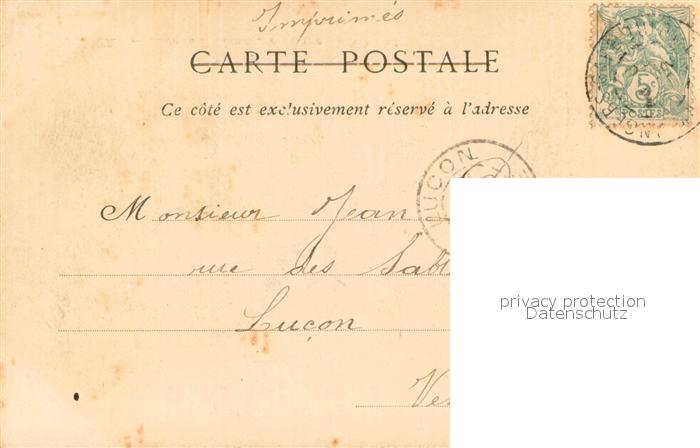 Imprimés
CARTE POSTALE
Ce côté est exclusivement réservé à l'adresse
5
POSTES
LUÇON
Monsieur Jean
rue des Sabl
Luçon
Ve
privacy protection
Datenschutz